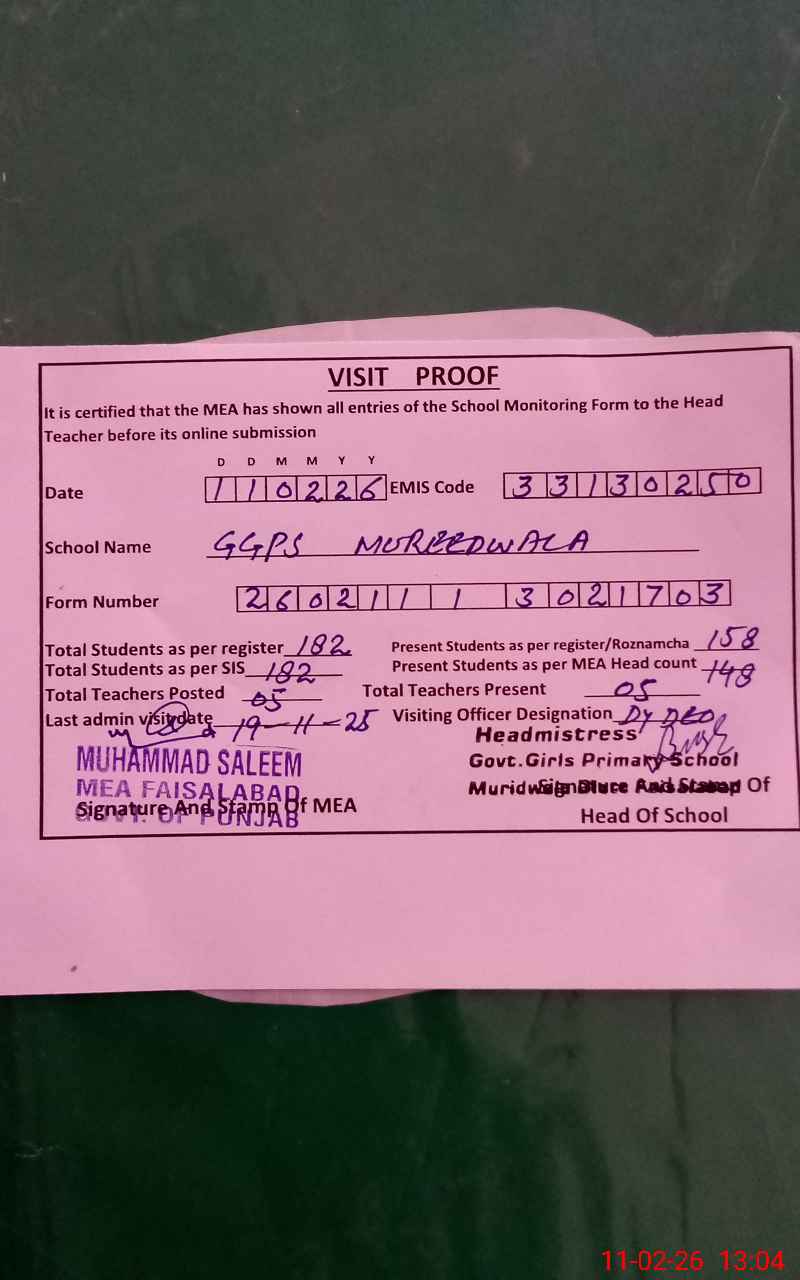 VISIT PROOF
It is certified that the MEA has shown all entries of the School Monitoring Form to the Head
Teacher before its online submission
D D M M Y Y
Date 110226 EMIS Code 33130250
School Name GGPS MUREEDWALA
Form Number 260211 1 3021703
Total Students as per register 182 Present Students as per register/Roznamcha 158
Total Students as per SIS 182 Present Students as per MEA Head count 148
Total Teachers Posted 05 Total Teachers Present 05
Last admin visit date 19-11-25 Visiting Officer Designation Dy DEO
MUHAMMAD SALEEM Headmistress
MEA FAISALABAD Govt.Girls Primary School
GOVT. OF PUNJAB Muridwala
Signature And Stamp Of MEA Signature And Stamp Of
Head Of School
11-02-26 13:04